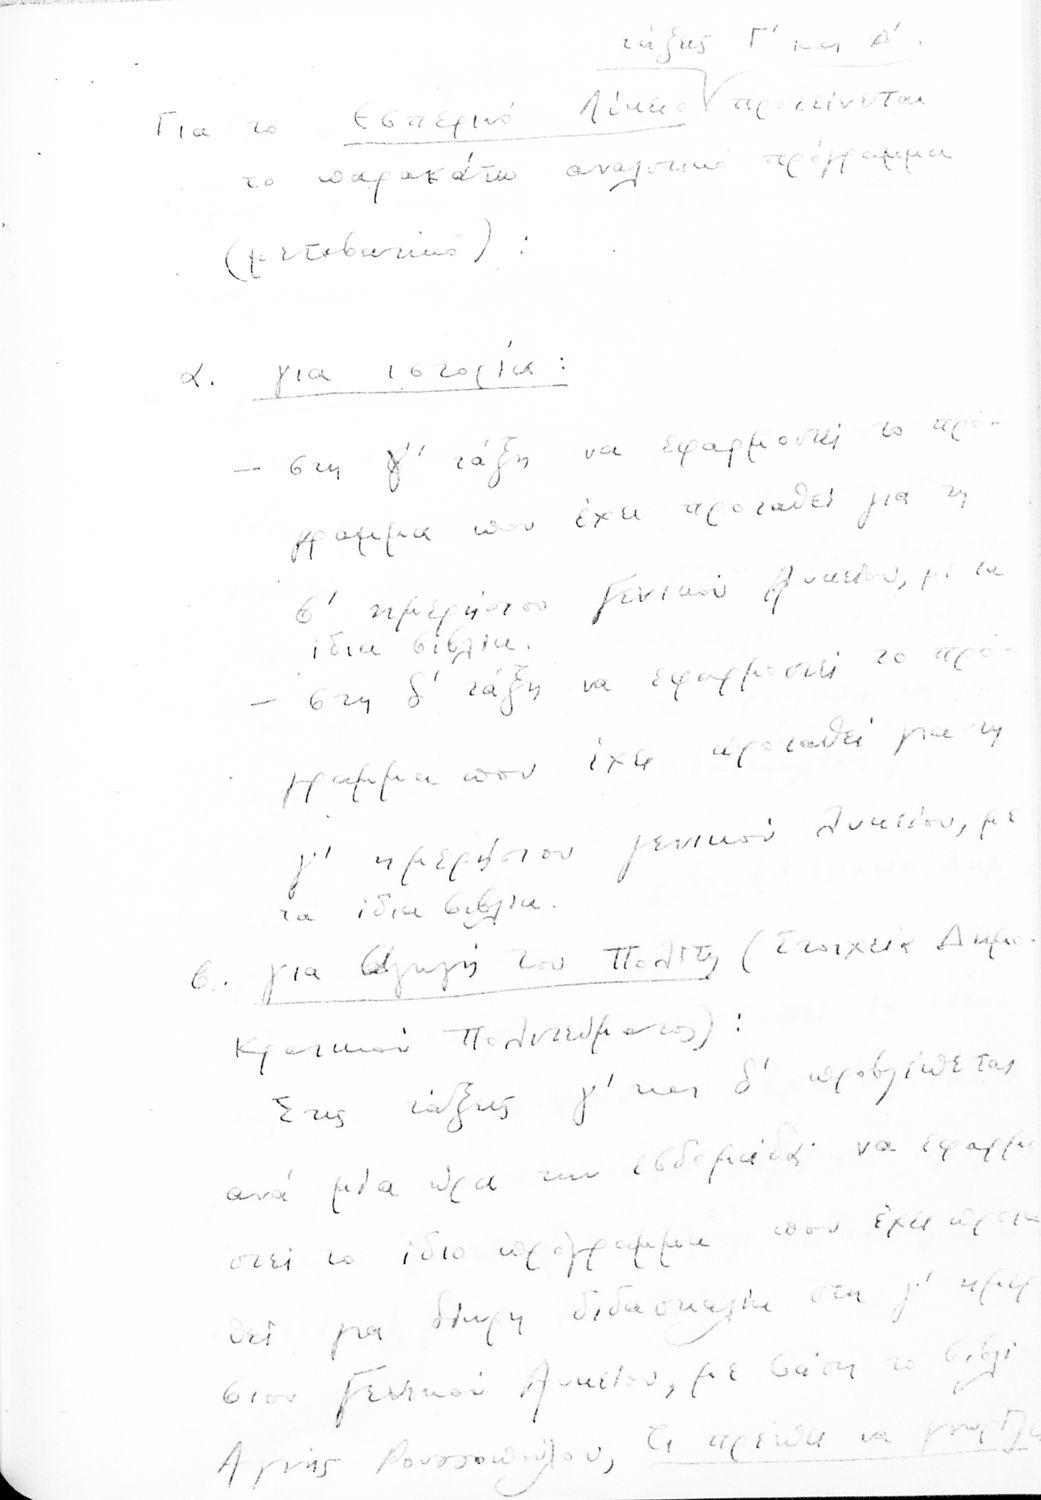 τάξεις Γ' και Δ'.
Για το Εσπερινό Λύκειο προτείνεται
το παρακάτω αναλυτικό πρόγραμμα
(μεταβατικό) :
α. για ιστορία :
— στη γ' τάξη να εφαρμοστεί το πρό-
γραμμα που έχει προταθεί για τη
β' ημερήσιου Γενικού Λυκείου, με τα
ίδια βιβλία.
— στη δ' τάξη να εφαρμοστεί το πρό-
γραμμα που έχει προταθεί για τη
γ' ημερήσιου γενικού λυκείου, με
τα ίδια βιβλία.
β. για αγωγή του Πολίτη (Στοιχεία Δημο-
κρατικού Πολιτεύματος) :
Στις τάξεις γ' και δ' προβλέπεται
ανά μία ώρα την εβδομάδα να εφαρμο
στεί το ίδιο πρόγραμμα που έχει προτα
θεί για δίωρη διδασκαλία στη γ' ημερ
σιου Γενικού Λυκείου, με βάση το βιβλί
Αγνής Ρουσσοπούλου, Τι πρέπει να γνωρίζει